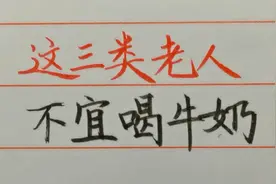 这三类老人
不宜喝牛奶